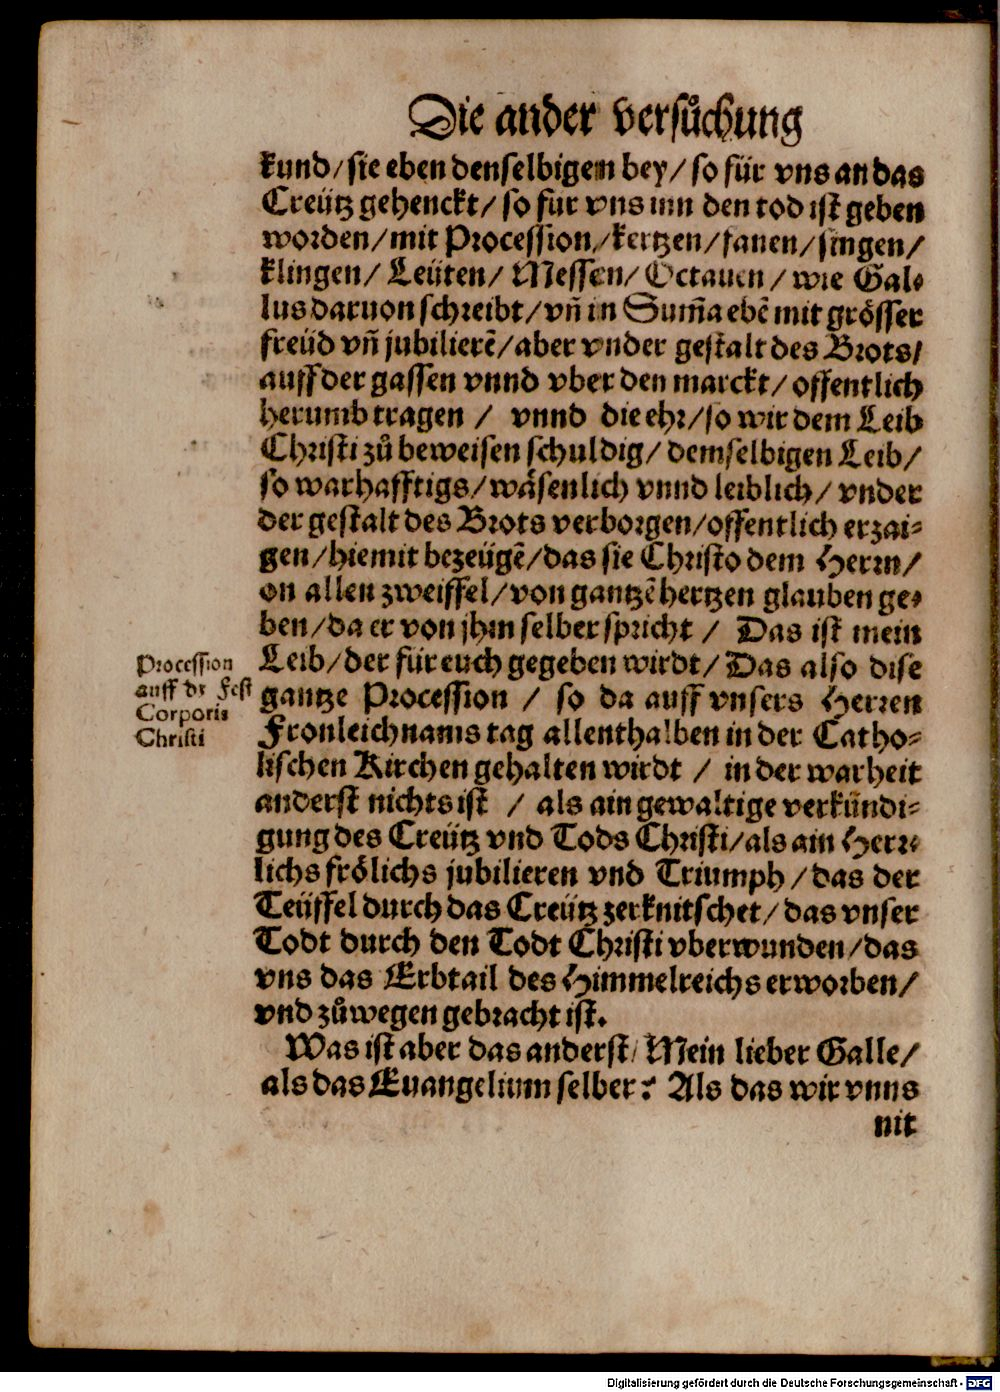 Die ander versůchung
kund/ sie eben denselbigem bey/ so für vns an das
Creütz gehenckt/ so für vns inn den tod ist geben
worden/ mit Procession/ kertzen/ fanen/ singen/
klingen/ Leüten/ Messen/ Octauen/ wie Gal⸗
lus daruon schreibt/ vñ in Sum̃a ebẽ mit grösser
freüd vñ jubilierẽ/ aber vnder gestalt des Brots/
auff der gassen vnnd vber den marckt/ offentlich
herumb tragen / vnnd die ehr/ so wir dem Leib
Christi zů beweisen schuldig/ demselbigen Leib/
so warhafftigs/ wäsenlich vnnd leiblich/ vnder
der gestalt des Brots verborgen/ offentlich erzai⸗
gen/ hiemit bezeügẽ/ das sie Christo dem Herrn/
on allen zweiffel/ von gantzẽ hertzen glauben ge⸗
ben/ da er von jhm selber spricht / Das ist mein
Leib/ der für euch gegeben wirdt/ Das also dise
gantze Procession / so da auff vnsers Herren
Fronleichnams tag allenthalben in der Catho⸗
lischen Kirchen gehalten wirdt / in der warheit
anderst nichts ist / als ain gewaltige verkündi⸗
gung des Creütz vnd Tods Christi/ als ain Herr⸗
lichs frölichs jubilieren vnd Triumph/ das der
Teüffel durch das Creütz zerknitschet/ das vnser
Todt durch den Todt Christi vberwunden/ das
vns das Erbtail des Himmelreichs erworben/
vnd zůwegen gebracht ist.
Was ist aber das anderst/ Mein lieber Galle/
als das Euangelium selber? Als das wir vnns
nit
Procession
auff dz Fest
Corporis
Christi
Digitalisierung gefördert durch die Deutsche Forschungsgemeinschaft - DFG